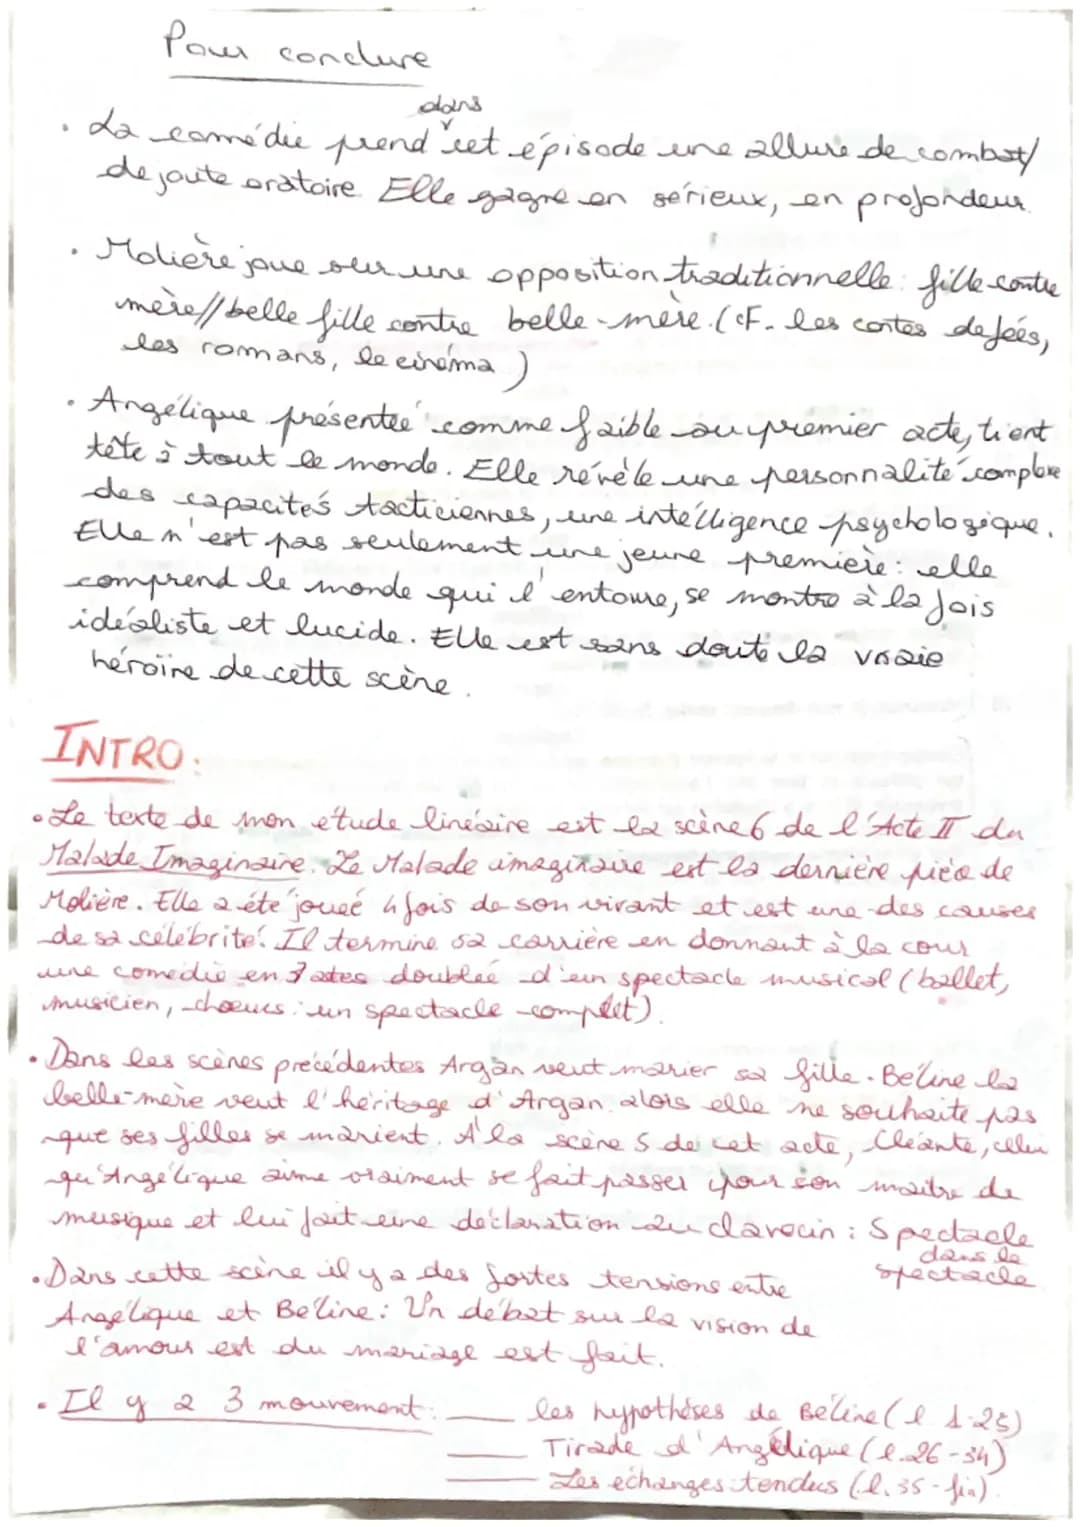 Pour conclure
dans
• La comédie prend cet épisode une allure de combat/
de joute oratoire. Elle gagne en sérieux, en profondeur.
• Molière joue sur une opposition traditionnelle : fille contre
mère // belle fille contre belle-mère. (cF. les contes de fées,
les romans, le cinéma)
• Angélique présentée comme faible au premier acte, tient
tête à tout le monde. Elle révèle une personnalité complexe
des capacités tacticiennes, une intelligence psychologique.
Elle n'est pas seulement une jeune première : elle
comprend le monde qui l'entoure, se montre à la fois
idéaliste et lucide. Elle est sans doute la vraie
héroïne de cette scène.
INTRO :
• Le texte de mon étude linéaire est la scène 6 de l'Acte II du
Malade Imaginaire. Le Malade imaginaire est la dernière pièce de
Molière. Elle a été jouée 4 fois de son vivant et est une des causes
de sa célébrité. Il termine sa carrière en donnant à la cour
une comédie en 3 actes doublée d'un spectacle musical (ballet,
musicien, choeurs : un spectacle complet).
• Dans les scènes précédentes Argan veut marier sa fille. Béline la
belle-mère veut l'héritage d'Argan. alors elle ne souhaite pas
que ses filles se marient. A la scène 5 de cet acte, Cléante, celui
qu'Angélique aime vraiment se fait passer pour son maitre de
musique et lui fait une déclaration au clavecin : Spectacle
dans le
spectacle
• Dans cette scène il y a des fortes tensions entre
Angélique et Béline : Un débat sur la vision de
l'amour est du mariage est fait.
• Il y a 3 mouvement : les hypothèses de Béline (l 1-25)
Tirade d'Angélique (l.26-34)
Les échanges tendus (l.35-fin).